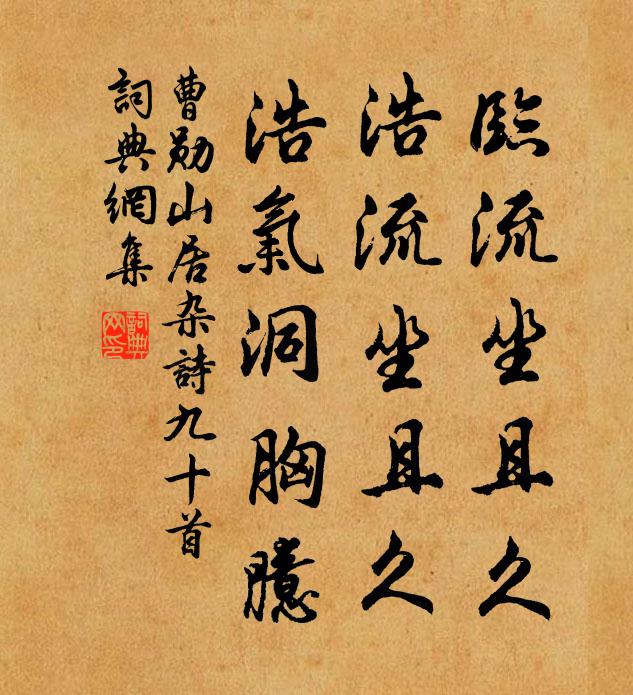 臨流坐且久
浩流坐且久
浩氣洞胸臆
曹勛山居杂詩九十首
詞典網集
詞典网印